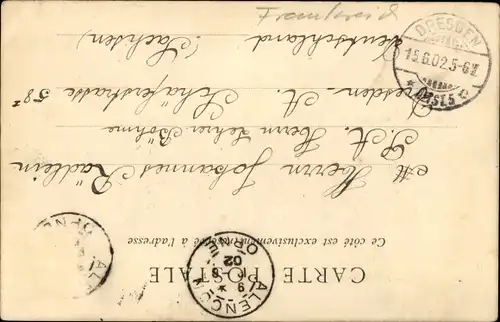 CARTE POSTALE
Ce côté est exclusivement réservé à l'adresse
Herrn Johannes Rädlein
P. A. Herrn Lehrer Böhme
Dresden-A. Schäferstrasse 58
Deutschland (Sachsen)
Frankreich
DRESDEN
15.6.02.5-6
ALENCON
ORNE
02
AL
ORNE